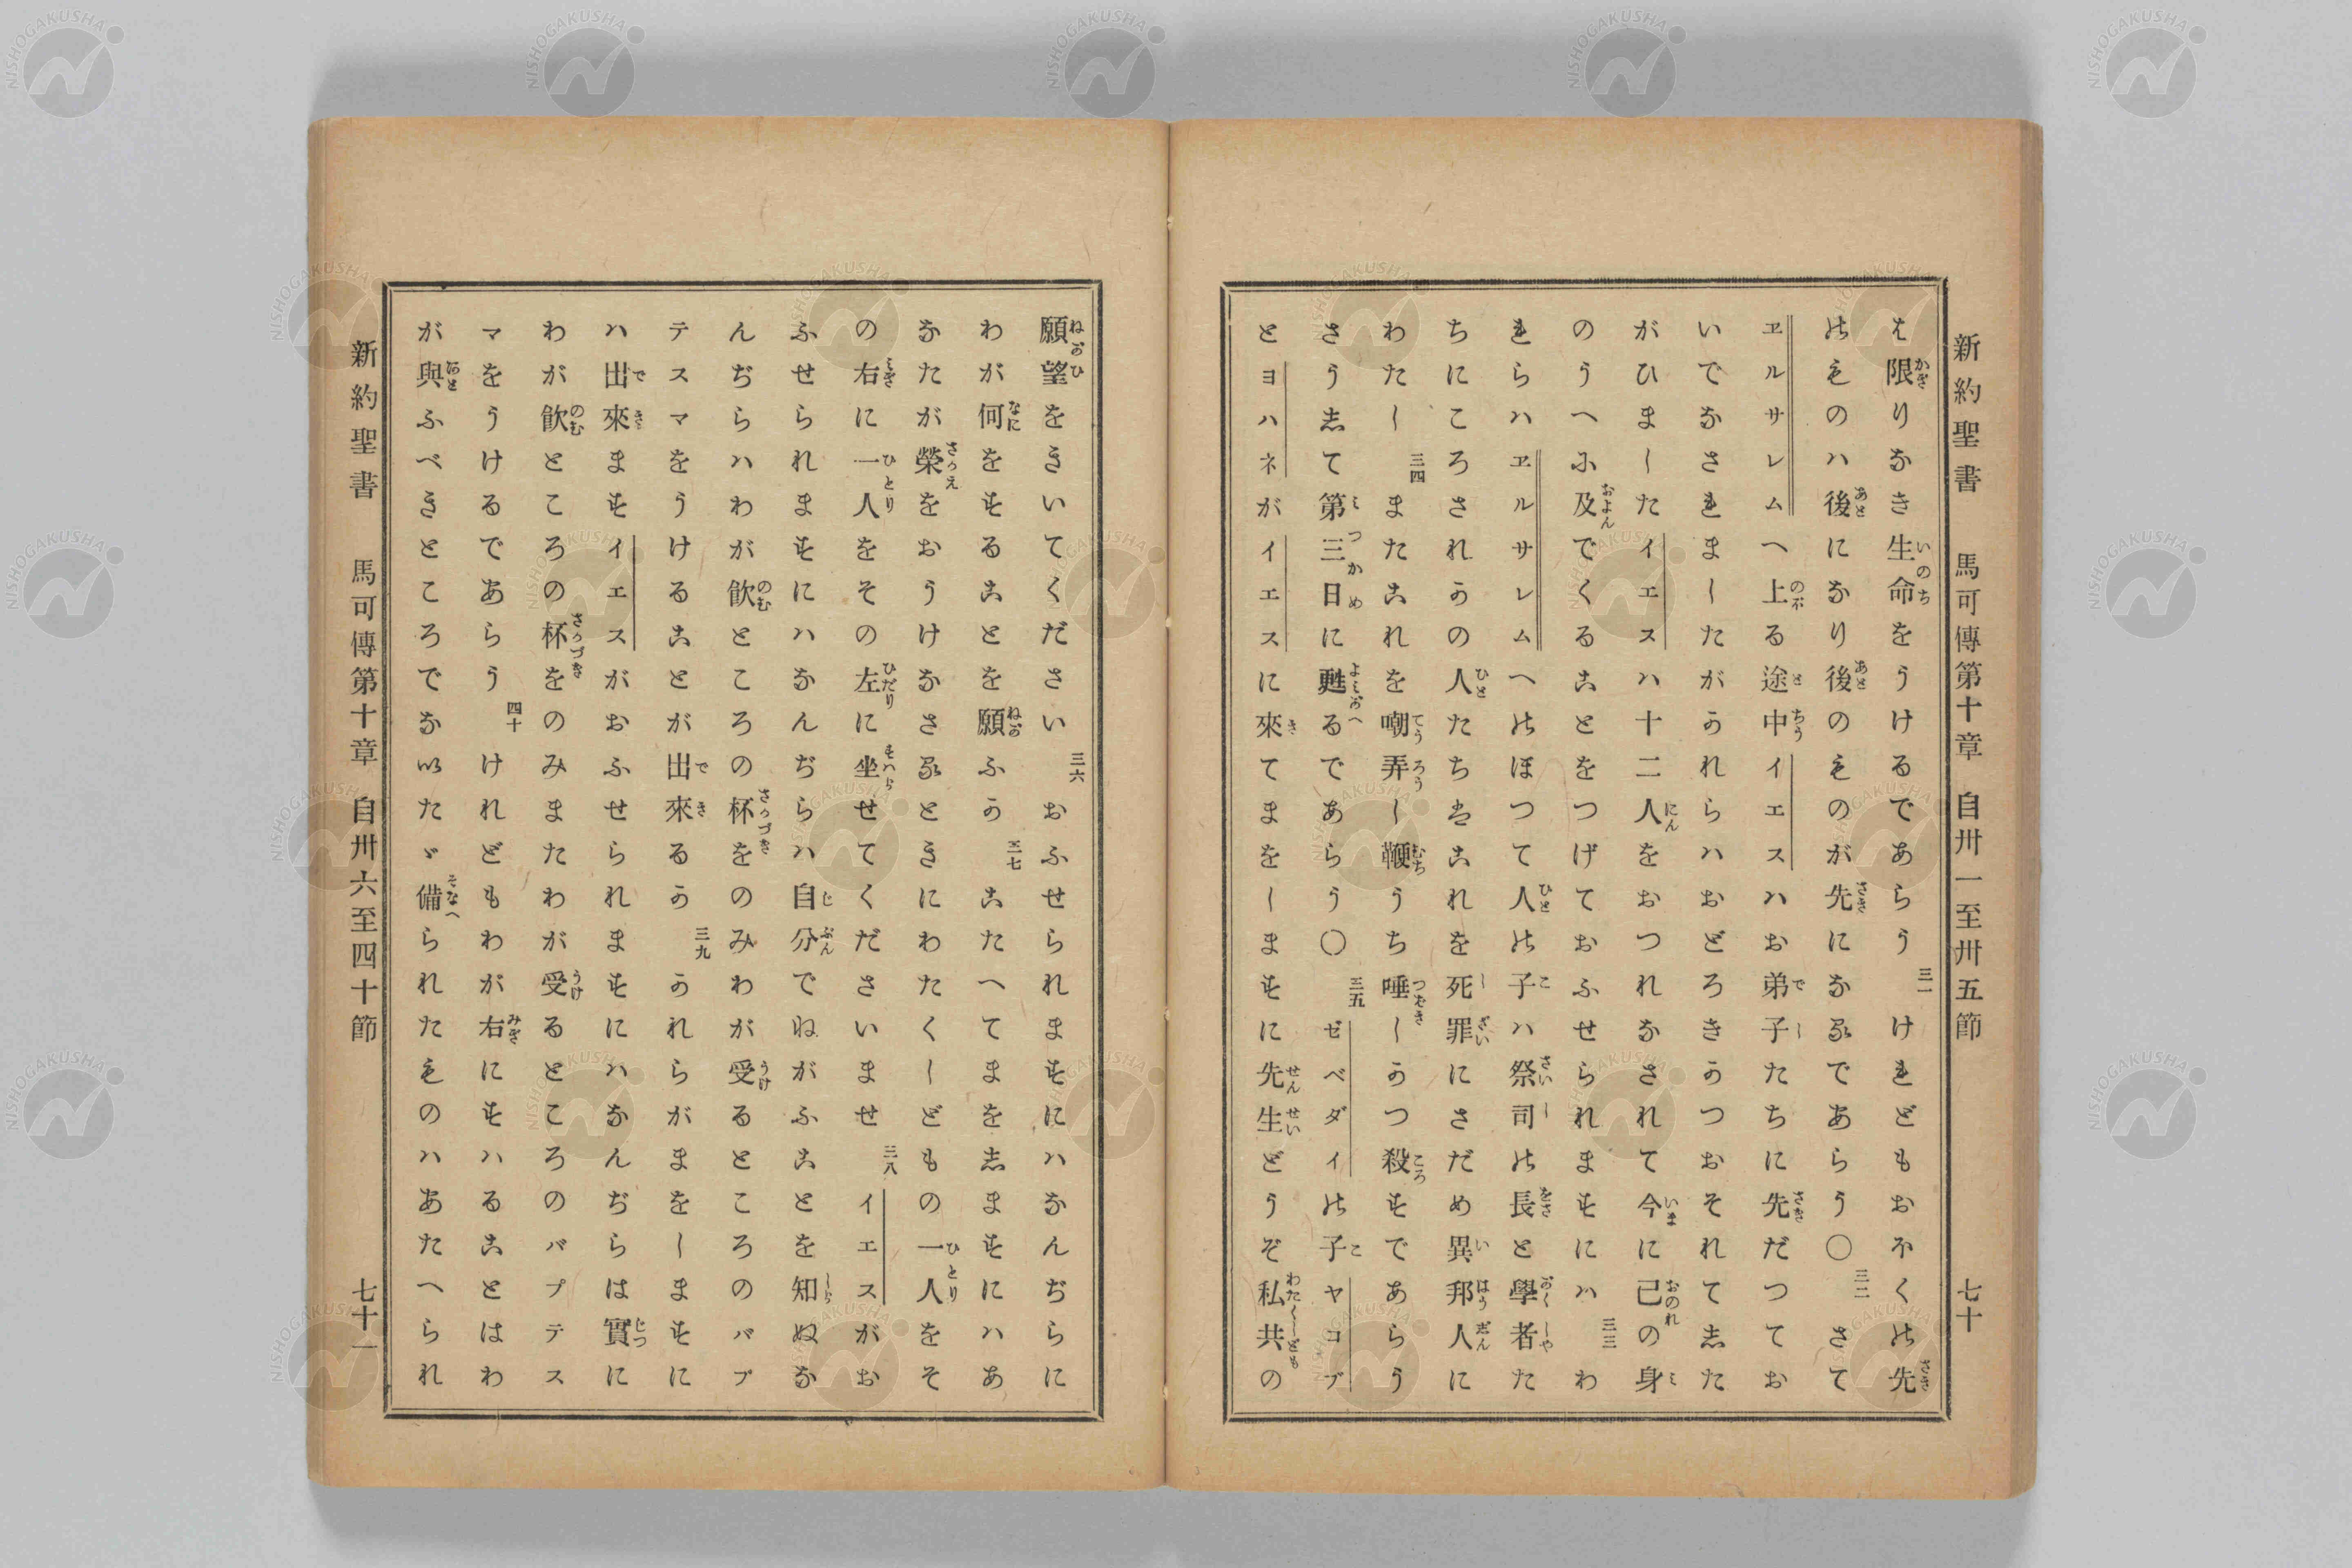 新約聖書 馬可傳第十章 自卅一至卅五節 七十
は限りなき生命をうけるであらう 三一 けれどもおほくの先
のものハ後になり後のものが先になるであらう〇 三二 さて
ヱルサレムへ上る途中イエスハお弟子たちに先だつてお
いでなされましたがかれらハおどろきかつおそれてした
がひましたイエスハ十二人をおつれなされて今に己の身
のうへに及でくることをつげておふせられますにハ 三三 わ
れらハヱルサレムへのぼつて人の子ハ祭司の長と學者た
ちにころされかの人たちはこれを死罪にさだめ異邦人に
わたし 三四 またこれを嘲弄し鞭うち唾しかつ殺すであらう
さうして第三日に甦るであらう〇 三五 ゼベダイの子ヤコブ
とヨハネがイエスに來てまをしますに先生どうぞ私共の
願望をきいてください 三六 おふせられますにハなんぢらに
わが何をすることを願ふか 三七 こたへてまをしますにハあ
なたが榮をおうけなさるときにわたくしどもの一人をそ
の右に一人をその左に坐せてくださいませ 三八 イエスがお
ふせられますにハなんぢらハ自分でねがふことを知ぬな
んぢらハわが飲ところの杯をのみわが受るところのバプ
テスマをうけることが出來るか 三九 かれらがまをしますに
ハ出來ますイエスがおふせられますにハなんぢらは實に
わが飲ところの杯をのみまたわが受るところのバプテス
マをうけるであらう 四十 けれどもわが右にすハることはわ
が與ふべきところでないたゞ備られたものハあたへられ
新約聖書 馬可傳第十章 自卅六至四十節 七十一